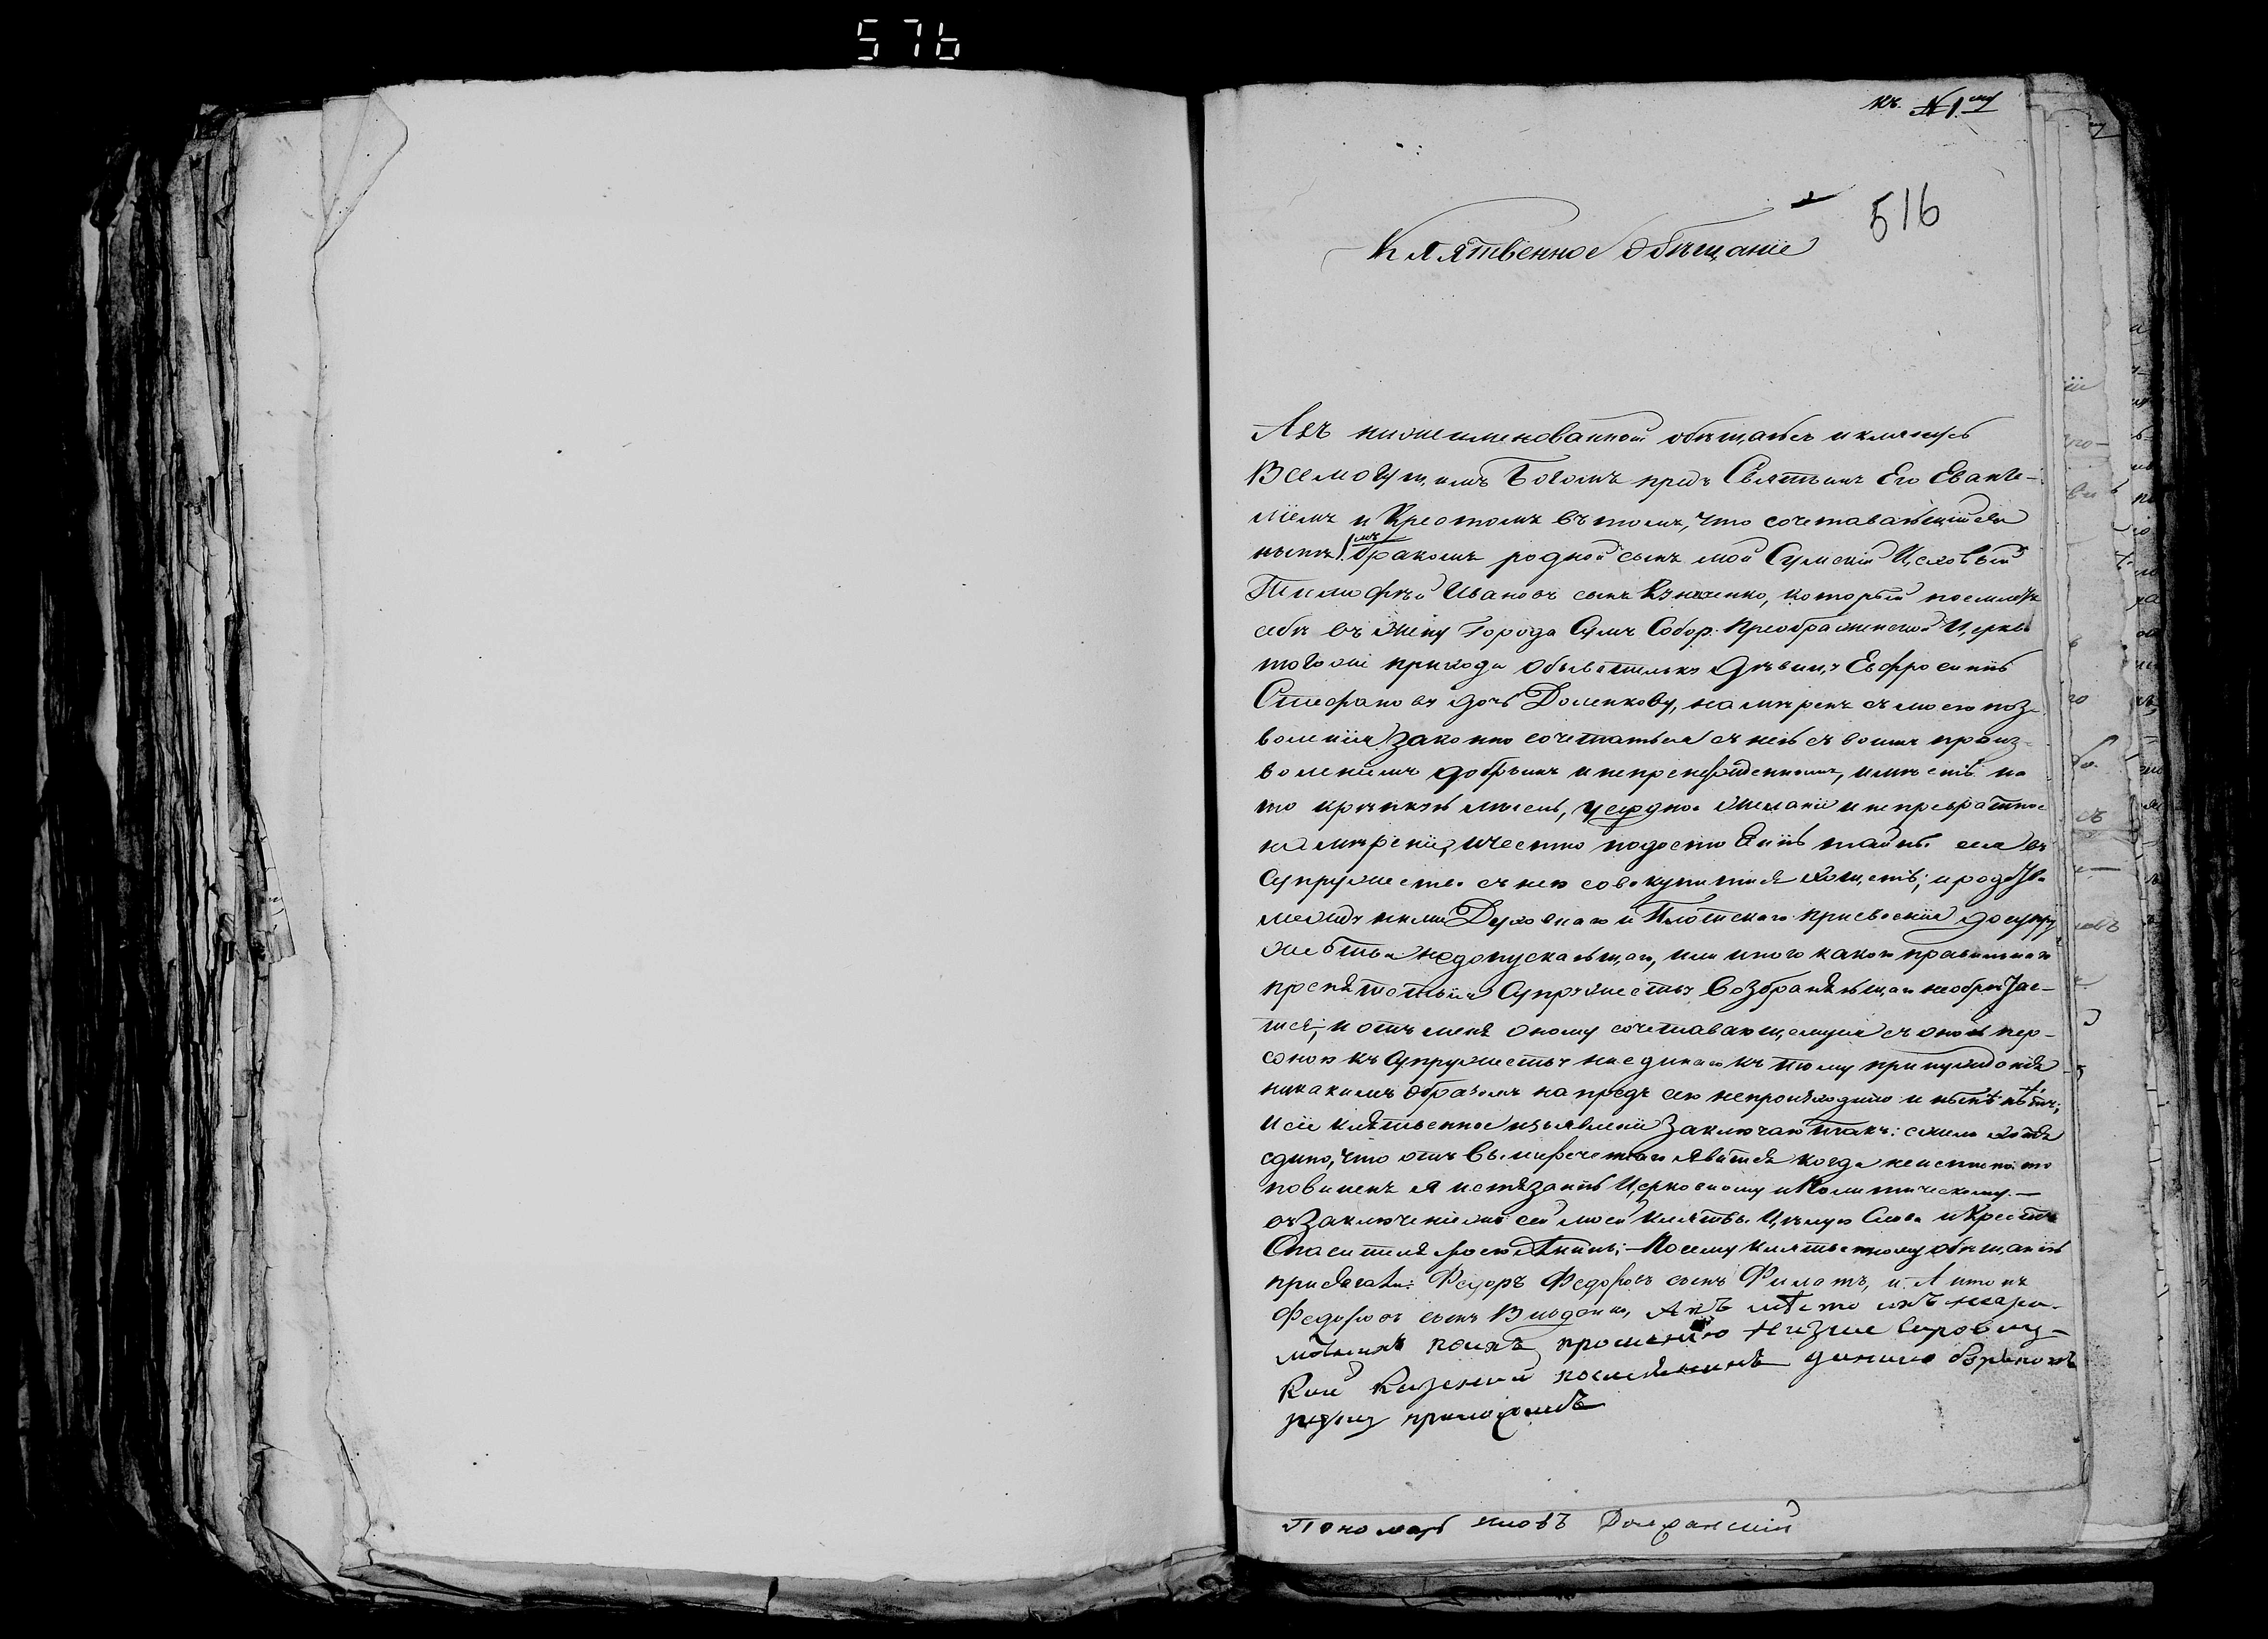 576
къ №1му
516
Клятвенное обѣщаніе
Азъ нижеименованной обѣщаюсь и клянусь
Всемогущимъ Богомъ предъ Святымъ Его Еванге-
ліемъ и Крестомъ въ томъ, что сочетавающійся
бракомъ родной сынъ мой Сумскій Цеховый
Тимофѣй Ивановъ сынъ который поемлетъ
себѣ въ жену Города Сумъ Собор. Преображенской Церкви
того же прихода обывательку дѣвицу Евфросинію
Стефанову дочь Доценкову, намѣренъ съ моего поз-
воленія законно сочетаться съ нею съ воимъ произ-
воленіемъ добрымъ и непренужденнымъ, имѣетъ на
то крѣпкую мысль, усердное желаніе и непревратное
намѣреніе, и честно по достоянію тайны сея въ
Супружество съ нею совокупится хощетъ; и родства
между ними Духовнаго и Плотскаго присвоенія до супру
жества недопускающаго, или иного какого правильнаго
препятствія Супружеству Возбраняющаго необрѣтае-
тся; и отъ меня оному сочетавающемуся съ оною пер-
соною къ Супружеству ни единаго къ тому принужденія
никакимъ образомъ напредъ сего непроисходило и нынѣ нѣтъ;
и сіе клятвенное изъявленіе заключаю такъ: ежели хотя
едино, что отъ вышереченнаго явится когда неистинно то
повиненъ я истязанію Церковному и Политическому.—
въ заключеніе же сей моей клятвы Цѣлую Слова и Крестъ
Спасителя моего Аминь; — По сему клятвенному обѣщанію
присягали: Федоръ Федоровъ сынъ Филатъ, и Антонъ
Федоровъ сынъ а въ мѣсто ихъ негра-
мотныхъ поихъ прошенію Нижне Сыроват-
кой Казенной поселянинъ
руку приложилъ
Пономарь Іаковъ